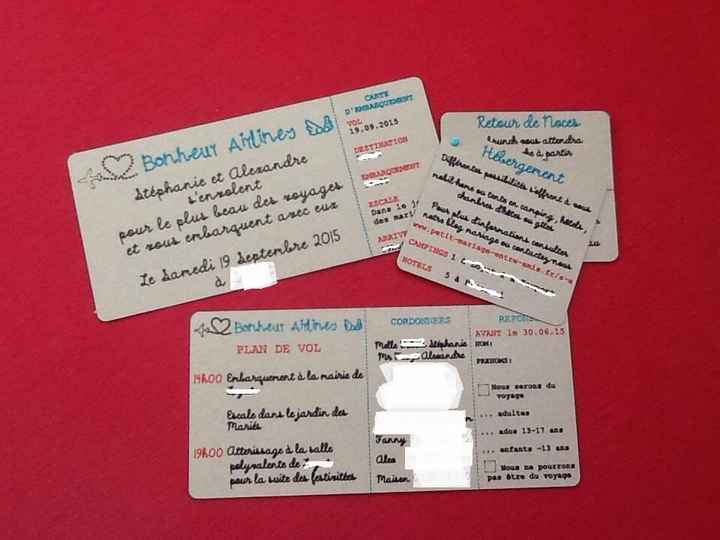 Bonheur Airlines
Stéphanie et Alexandre
s'envolent
pour le plus beau des voyages
et vous embarquent avec eux
Le Samedi 19 Septembre 2015
à
CARTE
D'EMBARQUEMENT
VOL
19.09.2015
DESTINATION
EMBARQUEMENT
ESCALE
Dans le
des mari
ARRIV
Retour de Noces
brunch vous attendra
à partir
Hébergement
Différentes possibilités s'offrent à vous
mobil-home ou tente en camping, hôtels,
chambres d'hôtes ou gîtes
Pour plus d'informations consulter
notre blog mariage ou contactez-nous
www.petit-mariage-entre-amis.fr/s-a
CAMPINGS 1
HOTELS 5 à
Bonheur Airlines
PLAN DE VOL
14h00 Embarquement à la mairie de
Escale dans le jardin des
Mariés
19h00 Atterissage à la salle
polyvalente de
pour la suite des festivitées
CORDONNEES
Melle Stéphanie
Mr Alexandre
Fanny
Alex
Maison
REPONS
AVANT le 30.06.15
NOM:
PRENOMS:
Nous serons du
voyage
... adultes
... ados 13-17 ans
... enfants -13 ans
Nous ne pourrons
pas être du voyage